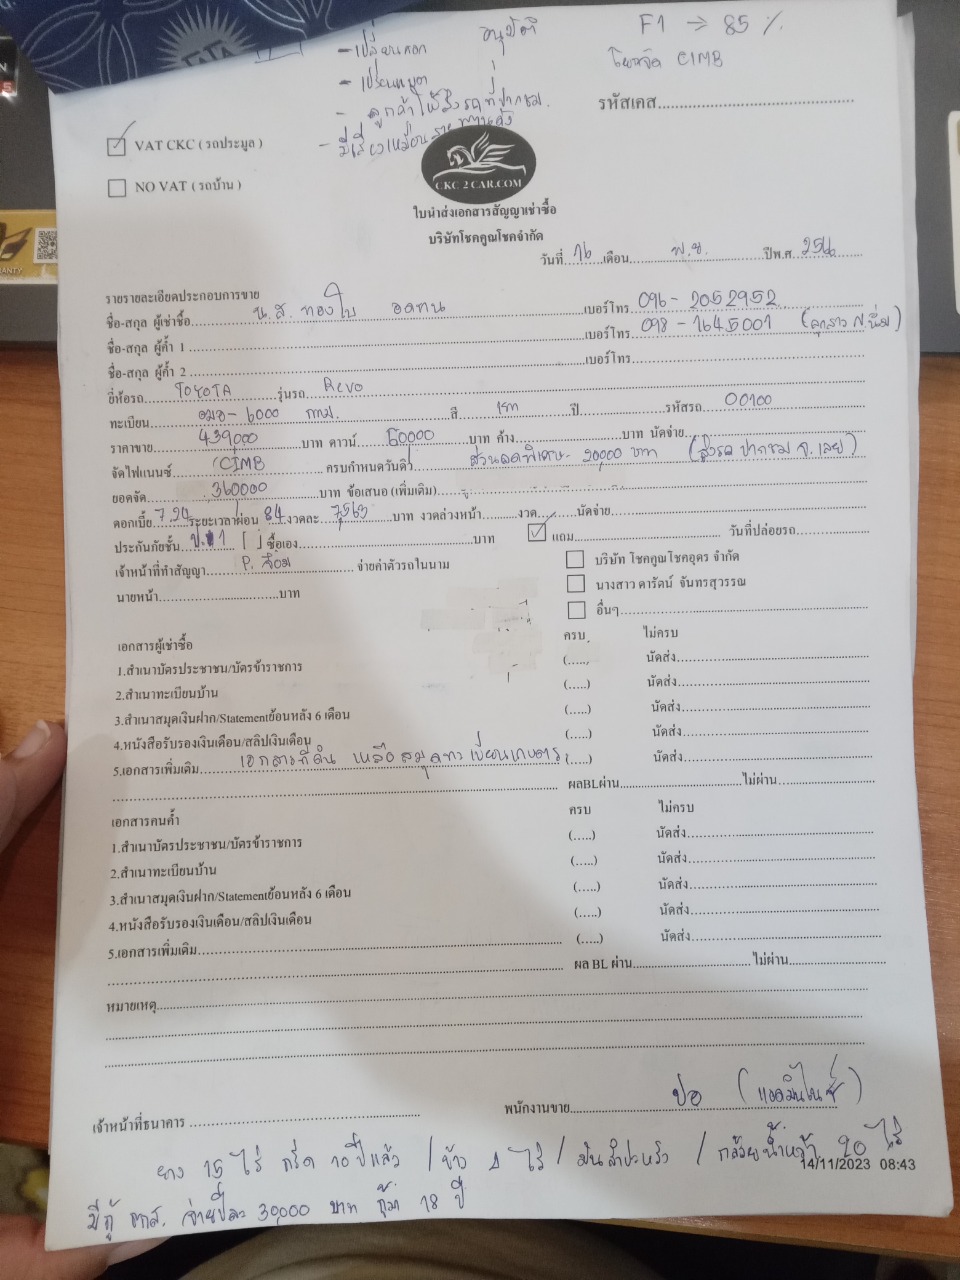 อนุมัติ F1 → 85 %
- เปลี่ยนดอก
โยกจัด CIMB
- ลูกค้าให้ส่งรถที่ปากชม
รหัสเคส
- มีเสียงเหมือนสายพานดัง
VAT CKC ( รถประมูล )
NO VAT ( รถบ้าน )
CKC 2 CAR.COM
ใบนำส่งเอกสารสัญญาเช่าซื้อ
บริษัทโชคคูณโชคจำกัด
วันที่ 16 เดือน พ.ย. ปีพ.ศ. 256
รายรายละเอียดประกอบการขาย
ชื่อ-สกุล ผู้เช่าซื้อ น.ส. ทองใบ อดทน เบอร์โทร 096-2052952
ชื่อ-สกุล ผู้ค้ำ 1 เบอร์โทร 098-1645001 (ลูกสาว
ชื่อ-สกุล ผู้ค้ำ 2 เบอร์โทร
ยี่ห้อรถ TOYOTA รุ่นรถ Revo
ทะเบียน 6000 กทม. สี เทา ปี รหัสรถ 00100
ราคาขาย 439,000 บาท ดาวน์ 60000 บาท ค้าง บาท นัดจ่าย
จัดไฟแนนซ์ CIMB ครบกำหนดวันดิ่ว ส่วนลดพิเศษ- 20,000 บาท (ส่งรถ ปากชม จ. เลย)
ยอดจัด 360000 บาท ข้อเสนอ (เพิ่มเติม)
ดอกเบี้ย 7.24 ระยะเวลาผ่อน 84 งวดละ บาท งวดล่วงหน้า งวด นัดจ่าย
ประกันภัยชั้น ป.1 [ ] ซื้อเอง บาท แถม วันที่ปล่อยรถ
เจ้าหน้าที่ทำสัญญา จ่ายค่าตัวรถในนาม บริษัท โชคคูณโชคอุดร จำกัด
นายหน้า บาท นางสาว ดารัตน์ จันทรสุวรรณ
อื่นๆ
เอกสารผู้เช่าซื้อ ครบ ไม่ครบ
1.สำเนาบัตรประชาชน/บัตรข้าราชการ (.....) นัดส่ง
2.สำเนาทะเบียนบ้าน (.....) นัดส่ง
3.สำเนาสมุดเงินฝาก/Statementย้อนหลัง 6 เดือน (.....) นัดส่ง
4.หนังสือรับรองเงินเดือน/สลิปเงินเดือน (.....) นัดส่ง
5.เอกสารเพิ่มเติม เอกสารที่ดิน เหลือ สมุดทะเบียนเกษตร (.....) นัดส่ง
ผลBLผ่าน ไม่ผ่าน
เอกสารคนค้ำ ครบ ไม่ครบ
1.สำเนาบัตรประชาชน/บัตรข้าราชการ (.....) นัดส่ง
2.สำเนาทะเบียนบ้าน (.....) นัดส่ง
3.สำเนาสมุดเงินฝาก/Statementย้อนหลัง 6 เดือน (.....) นัดส่ง
4.หนังสือรับรองเงินเดือน/สลิปเงินเดือน (.....) นัดส่ง
5.เอกสารเพิ่มเติม (.....) นัดส่ง
ผล BL ผ่าน ไม่ผ่าน
หมายเหตุ
เจ้าหน้าที่ธนาคาร พนักงานขาย ปอ (แอดมินไนซ์)
ยาง 15 ไร่ กรีด 10 ปีแล้ว / ข้าว 4 ไร่ / มันสำปะหลัง / กล้วยน้ำหว้า 20 ไร่
14/11/2023 08:43
มีกู้ ธกส. จ่ายปีละ 30,000 บาท กู้มา 18 ปี